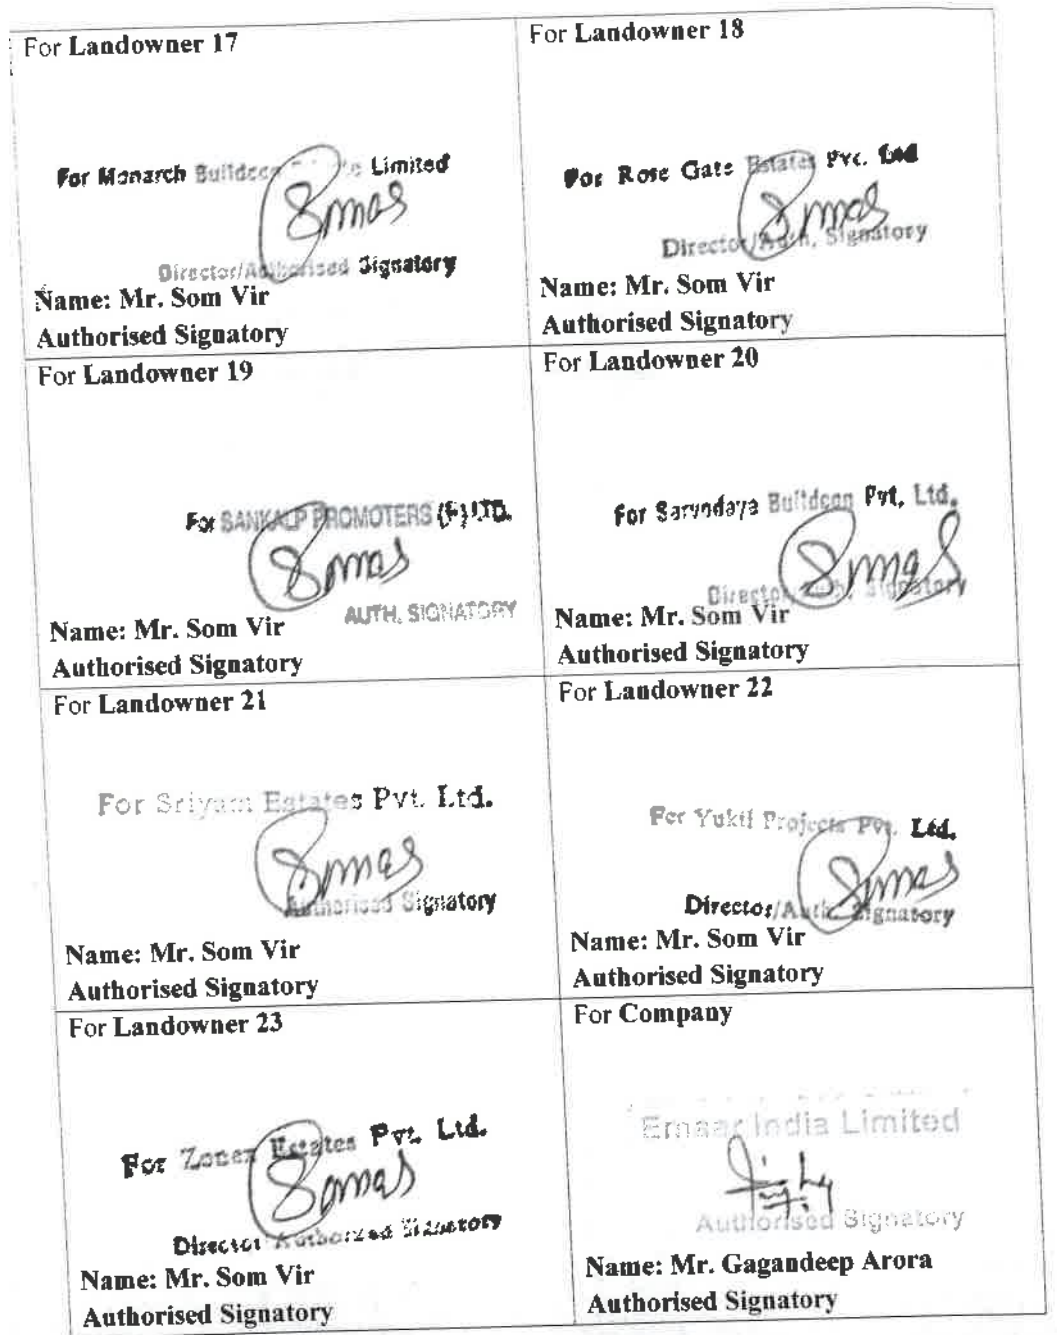 For Landowner 17
For Monarch Buildcon Limited
Director/Authorised Signatory
Name: Mr. Som Vir
Authorised Signatory
For Landowner 18
For Rose Gate Estates Pvt. Ltd
Director/Auth. Signatory
Name: Mr. Som Vir
Authorised Signatory
For Landowner 19
For SANKALP PROMOTERS (P) LTD.
AUTH. SIGNATORY
Name: Mr. Som Vir
Authorised Signatory
For Landowner 20
For Sarvodaya Buildcon Pvt. Ltd.
Director/Auth. Signatory
Name: Mr. Som Vir
Authorised Signatory
For Landowner 21
For Sriyam Estates Pvt. Ltd.
Authorised Signatory
Name: Mr. Som Vir
Authorised Signatory
For Landowner 22
For Yukti Projects Pvt. Ltd.
Director/Auth. Signatory
Name: Mr. Som Vir
Authorised Signatory
For Landowner 23
For Zonex Estates Pvt. Ltd.
Director Authorized Signatory
Name: Mr. Som Vir
Authorised Signatory
For Company
Emaar India Limited
Authorised Signatory
Name: Mr. Gagandeep Arora
Authorised Signatory